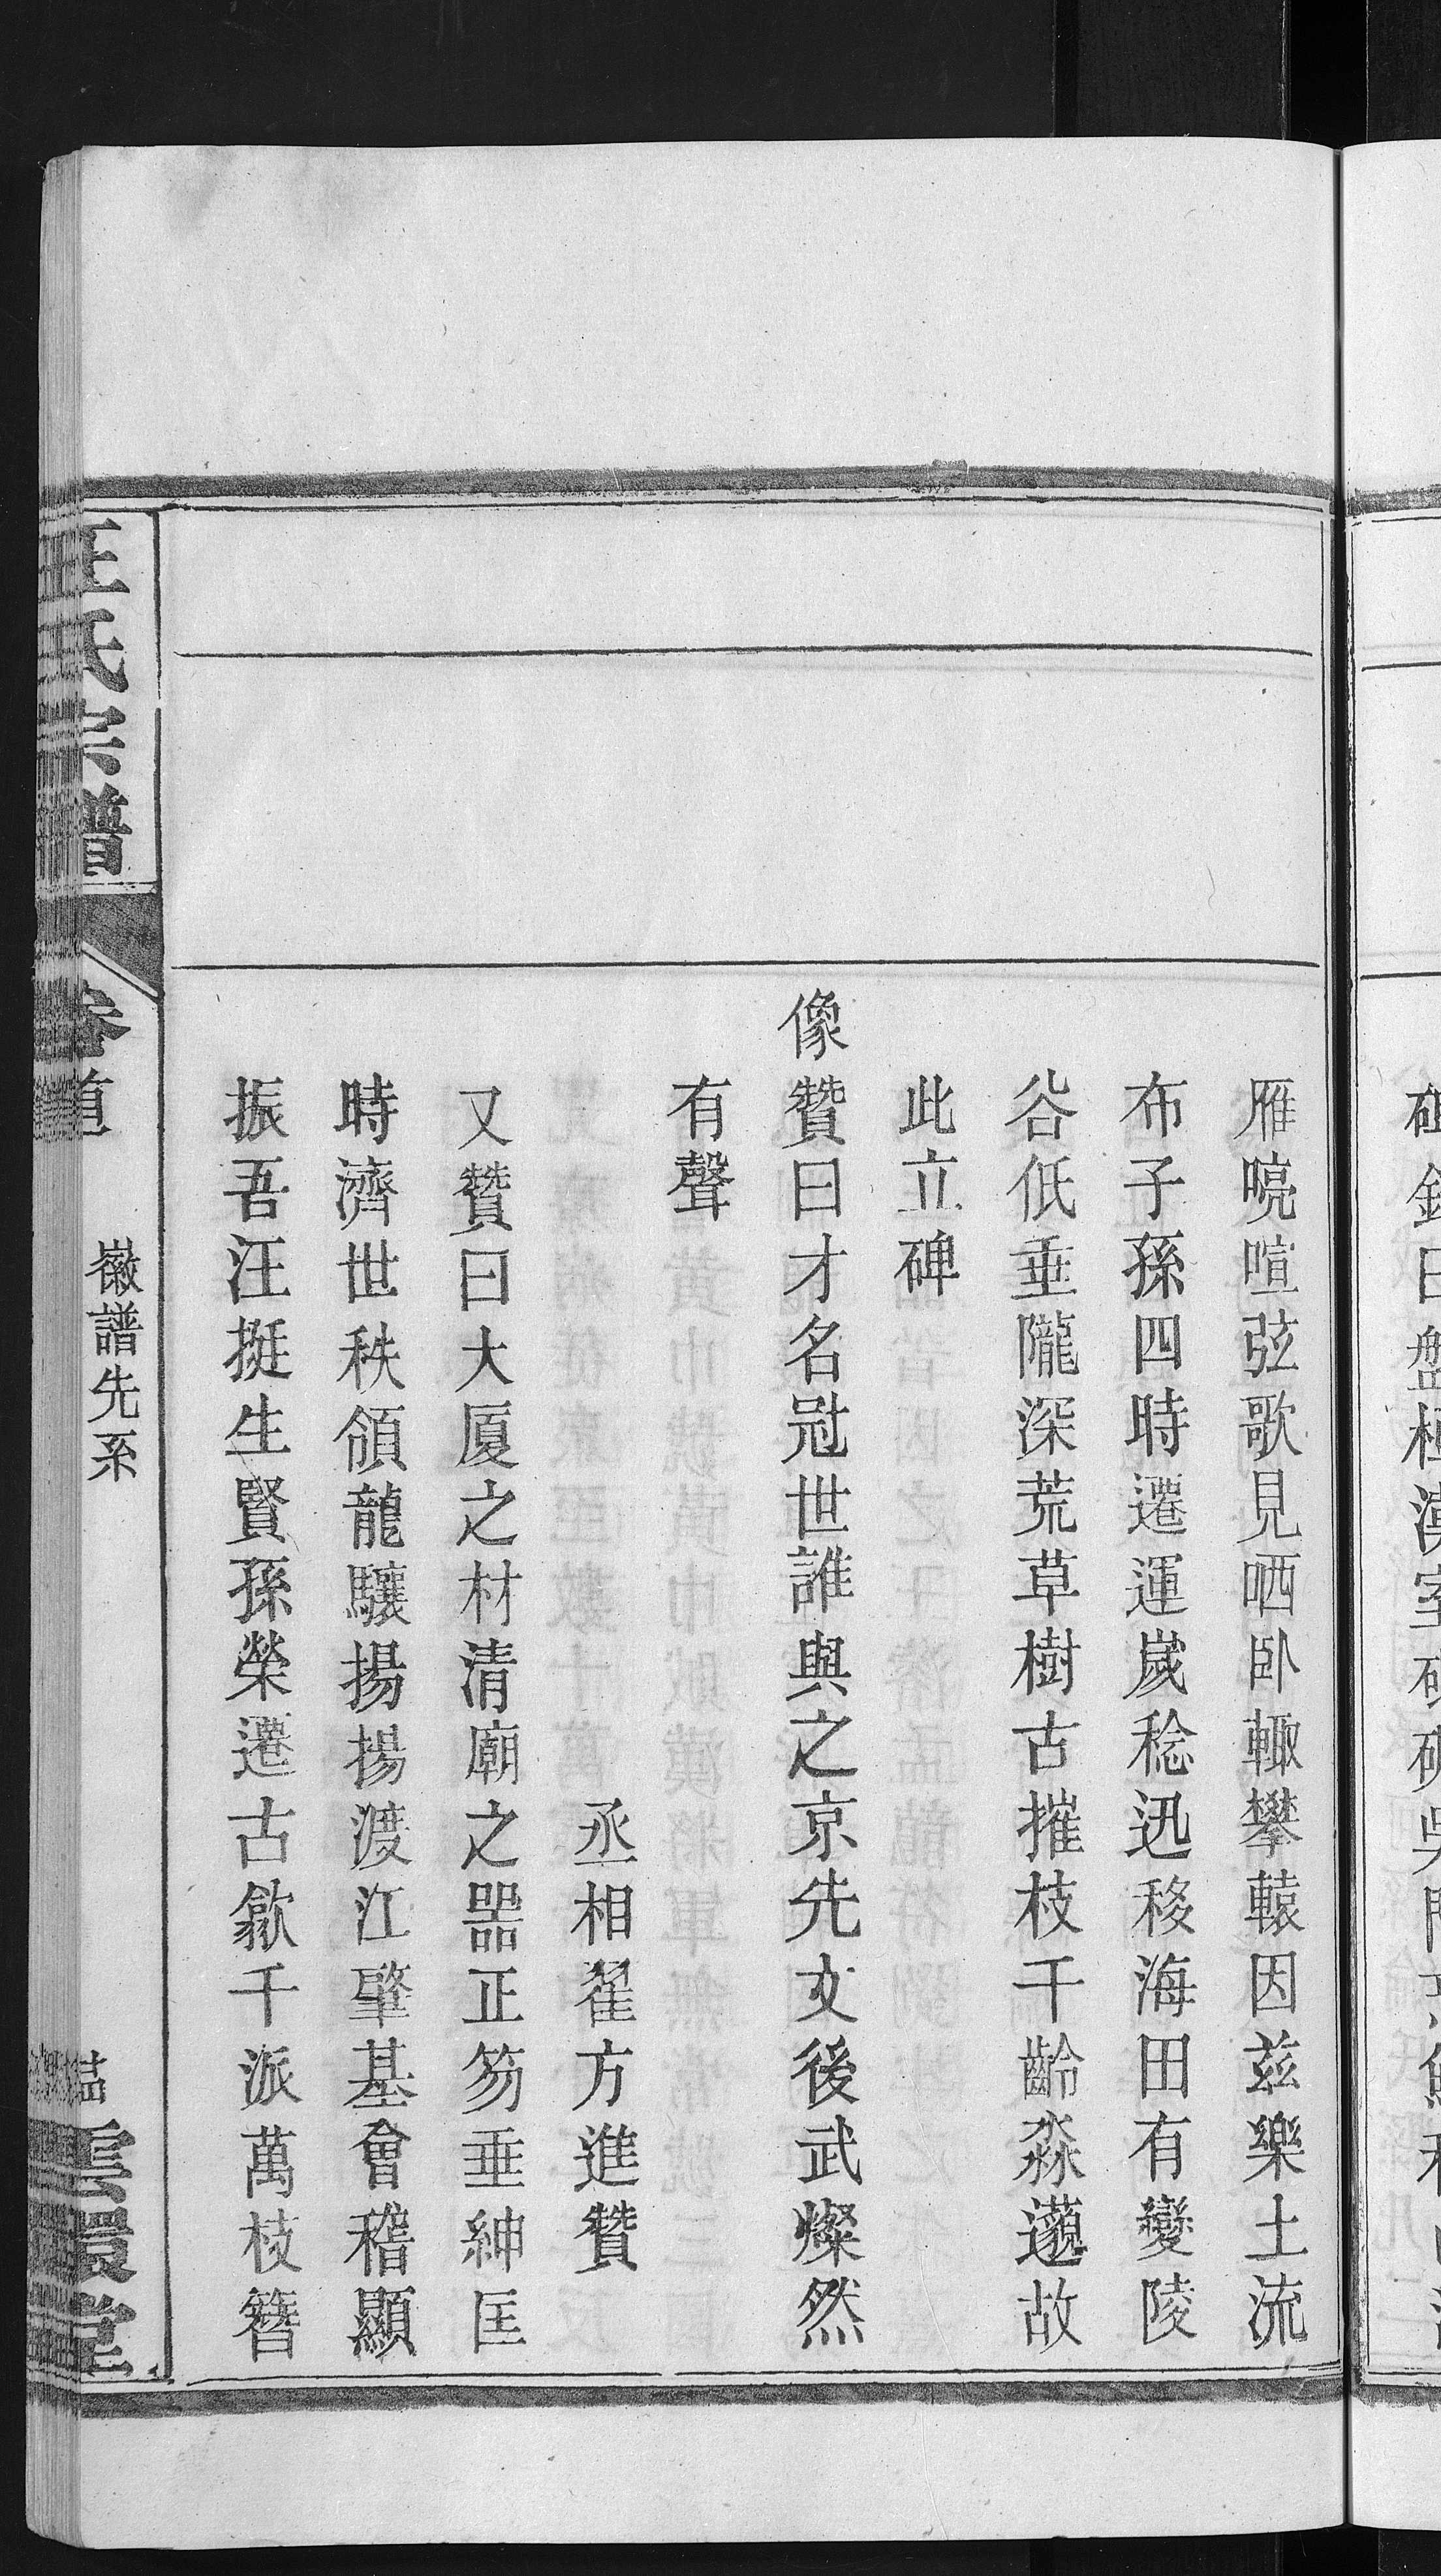 雁喨喧弦歌見哂臥轍攀轅因茲樂土流
布子孫四時遷運歲稔迅移海田有變陵
谷低垂隴深荒草樹古摧枝千齡淼邈故
此立碑
像贊曰才名冠世誰與之京先文後武燦然
有聲
丞相翟方進贊
又贊曰大厦之材清廟之器正笏垂紳匡
時濟世秩領龍驤揚揚渡江肇基會稽顯
振吾汪挺生賢孫榮遷古歙千派萬枝簪
汪氏宗譜
卷首
徽譜先系
雲環堂